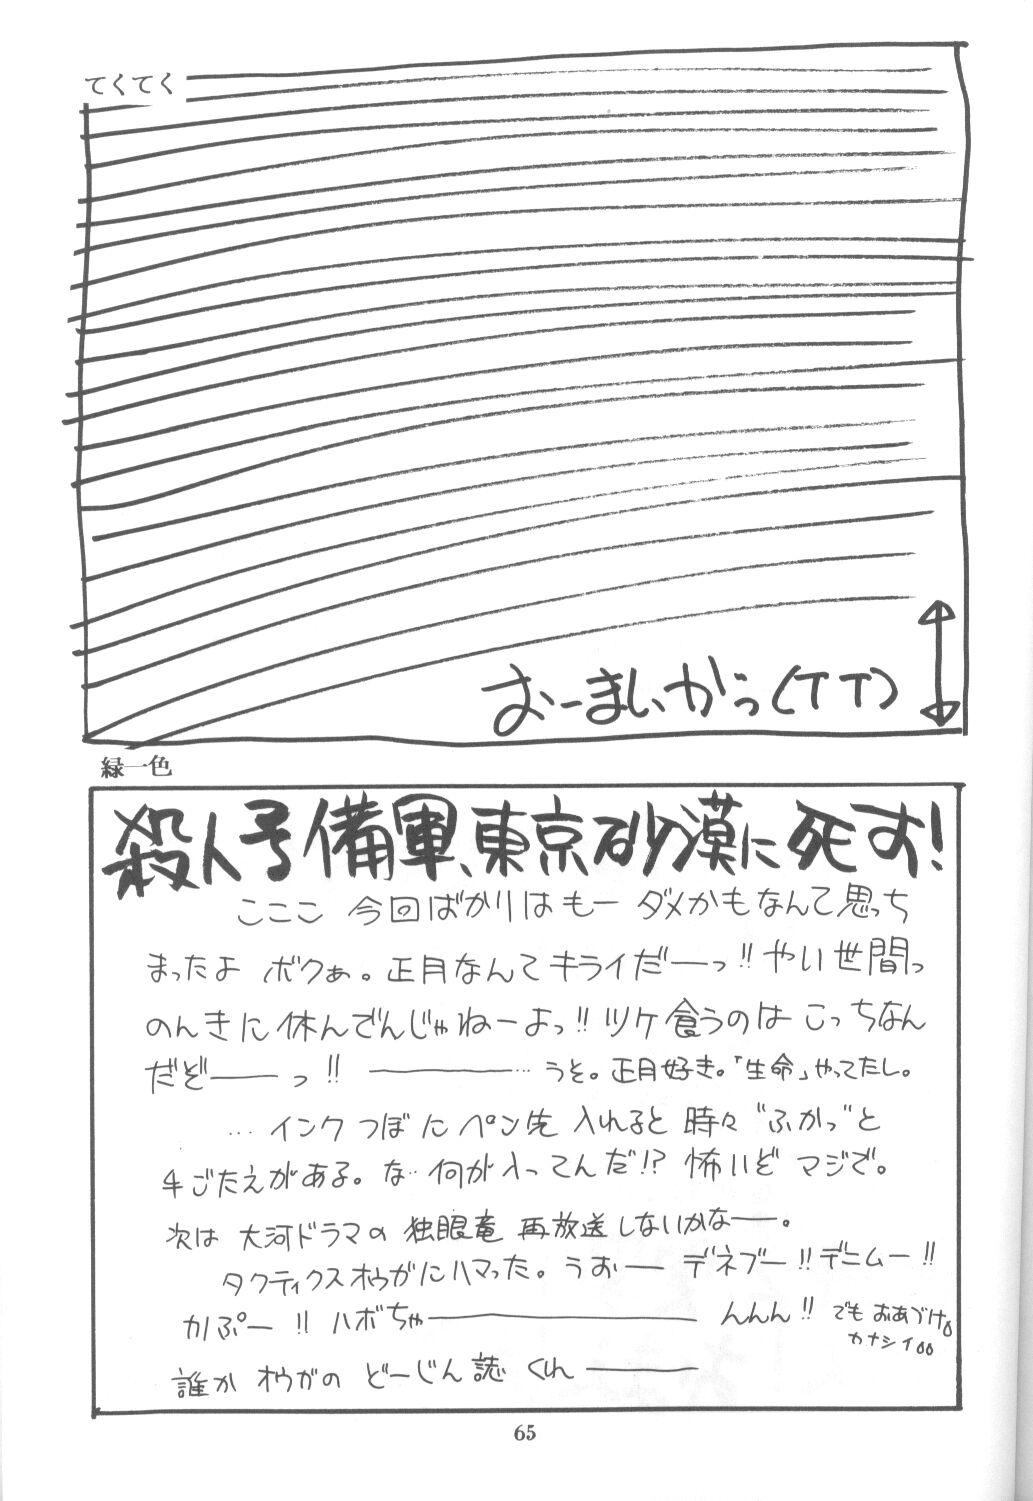 てくてく
おーまいがっ(TT)
緑一色
殺人予備軍、東京砂漠に死す!
こここ 今回ばかりはもー ダメかもなんて思っち
まったよ ボクぁ。正月なんてキライだーーっ!! やい世間っ
のんきに休んでんじゃねーよっ!! ツケ食うのは こっちなん
だぞ――っ!! ―――――… うそ。正月好き。「生命」やってたし。
… インクつぼに ペン先 入れると 時々 “ふかっ”と
手ごたえがある。な… 何が入ってんだ!? 怖いぞ マジで。
次は 大河ドラマの 独眼竜 再放送しないかなー。
タクティクスオウガにハマった。うおー デネブー!! デニムー!!
カノぷー !! ハボちゃ―――――――んんん!! でも おあづけ。
カナシイ。。
誰か オウガの どーじん誌 くれ ―――
65